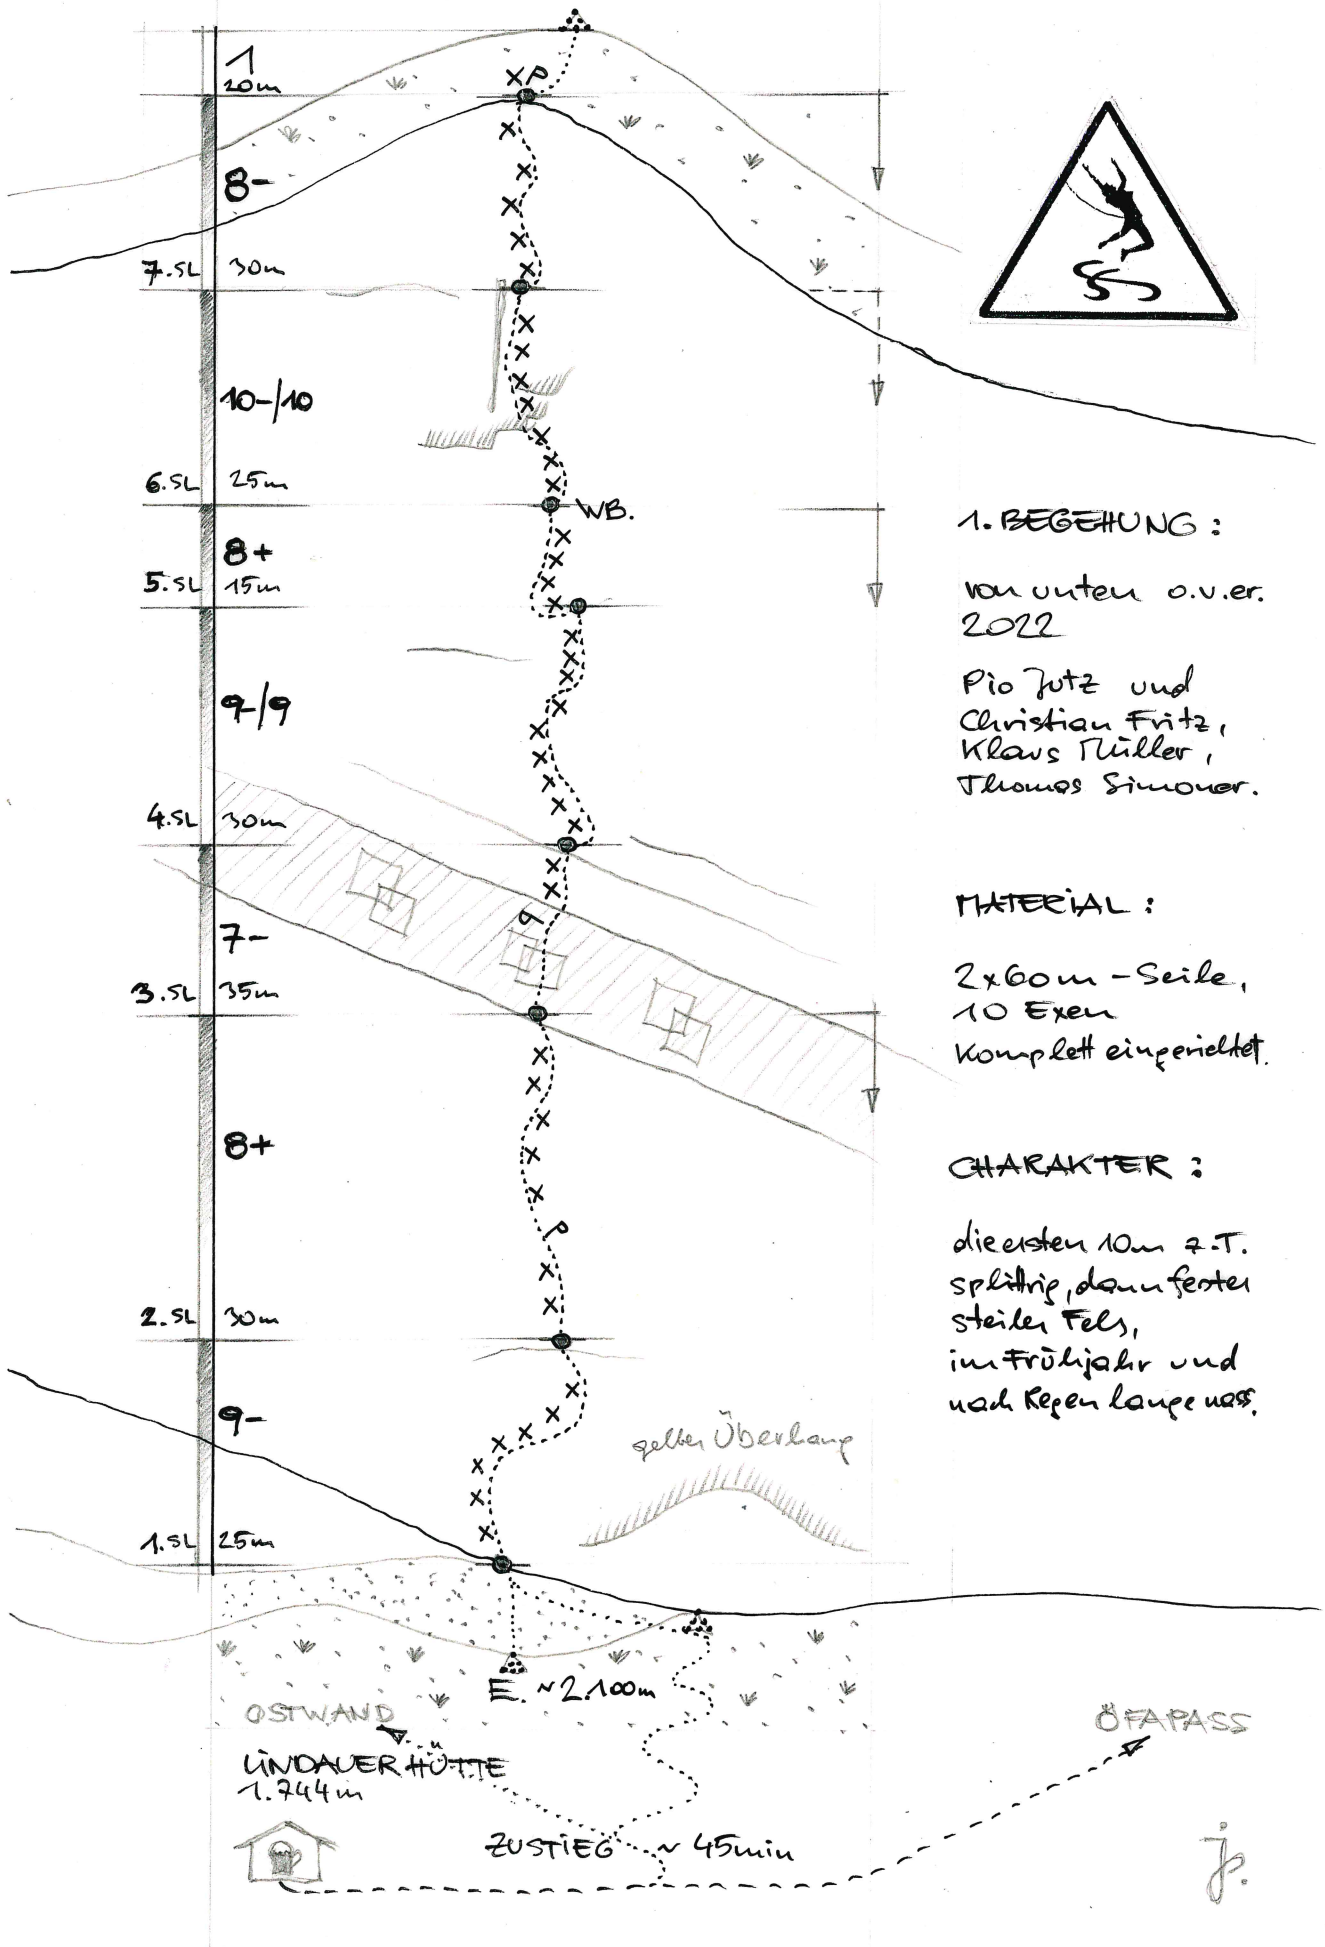 1
20m
P
8-
7.SL 30m
10-/10
6.SL 25m
WB.
8+
5.SL 15m
9-/9
4.SL 30m
7-
3.SL 35m
8+
P
2.SL 30m
9-
gelber Überhang
1.SL 25m
E. ~2.100m
OSTWAND
LINDAUER HÜTTE
1.744m
ZUSTIEG ~ 45min
ÖFAPASS
1. BEGEHUNG:
von unten o.v.er.
2022
Pio Jutz und
Christian Fritz,
Klaus Müller,
Thomas Simoner.
MATERIAL:
2x60m-Seile,
10 Exen
Komplett eingerichtet.
CHARAKTER:
die ersten 10m z.T.
splittrig, dann fester
steiler Fels,
im Frühjahr und
nach Regen lange nass.
jp.